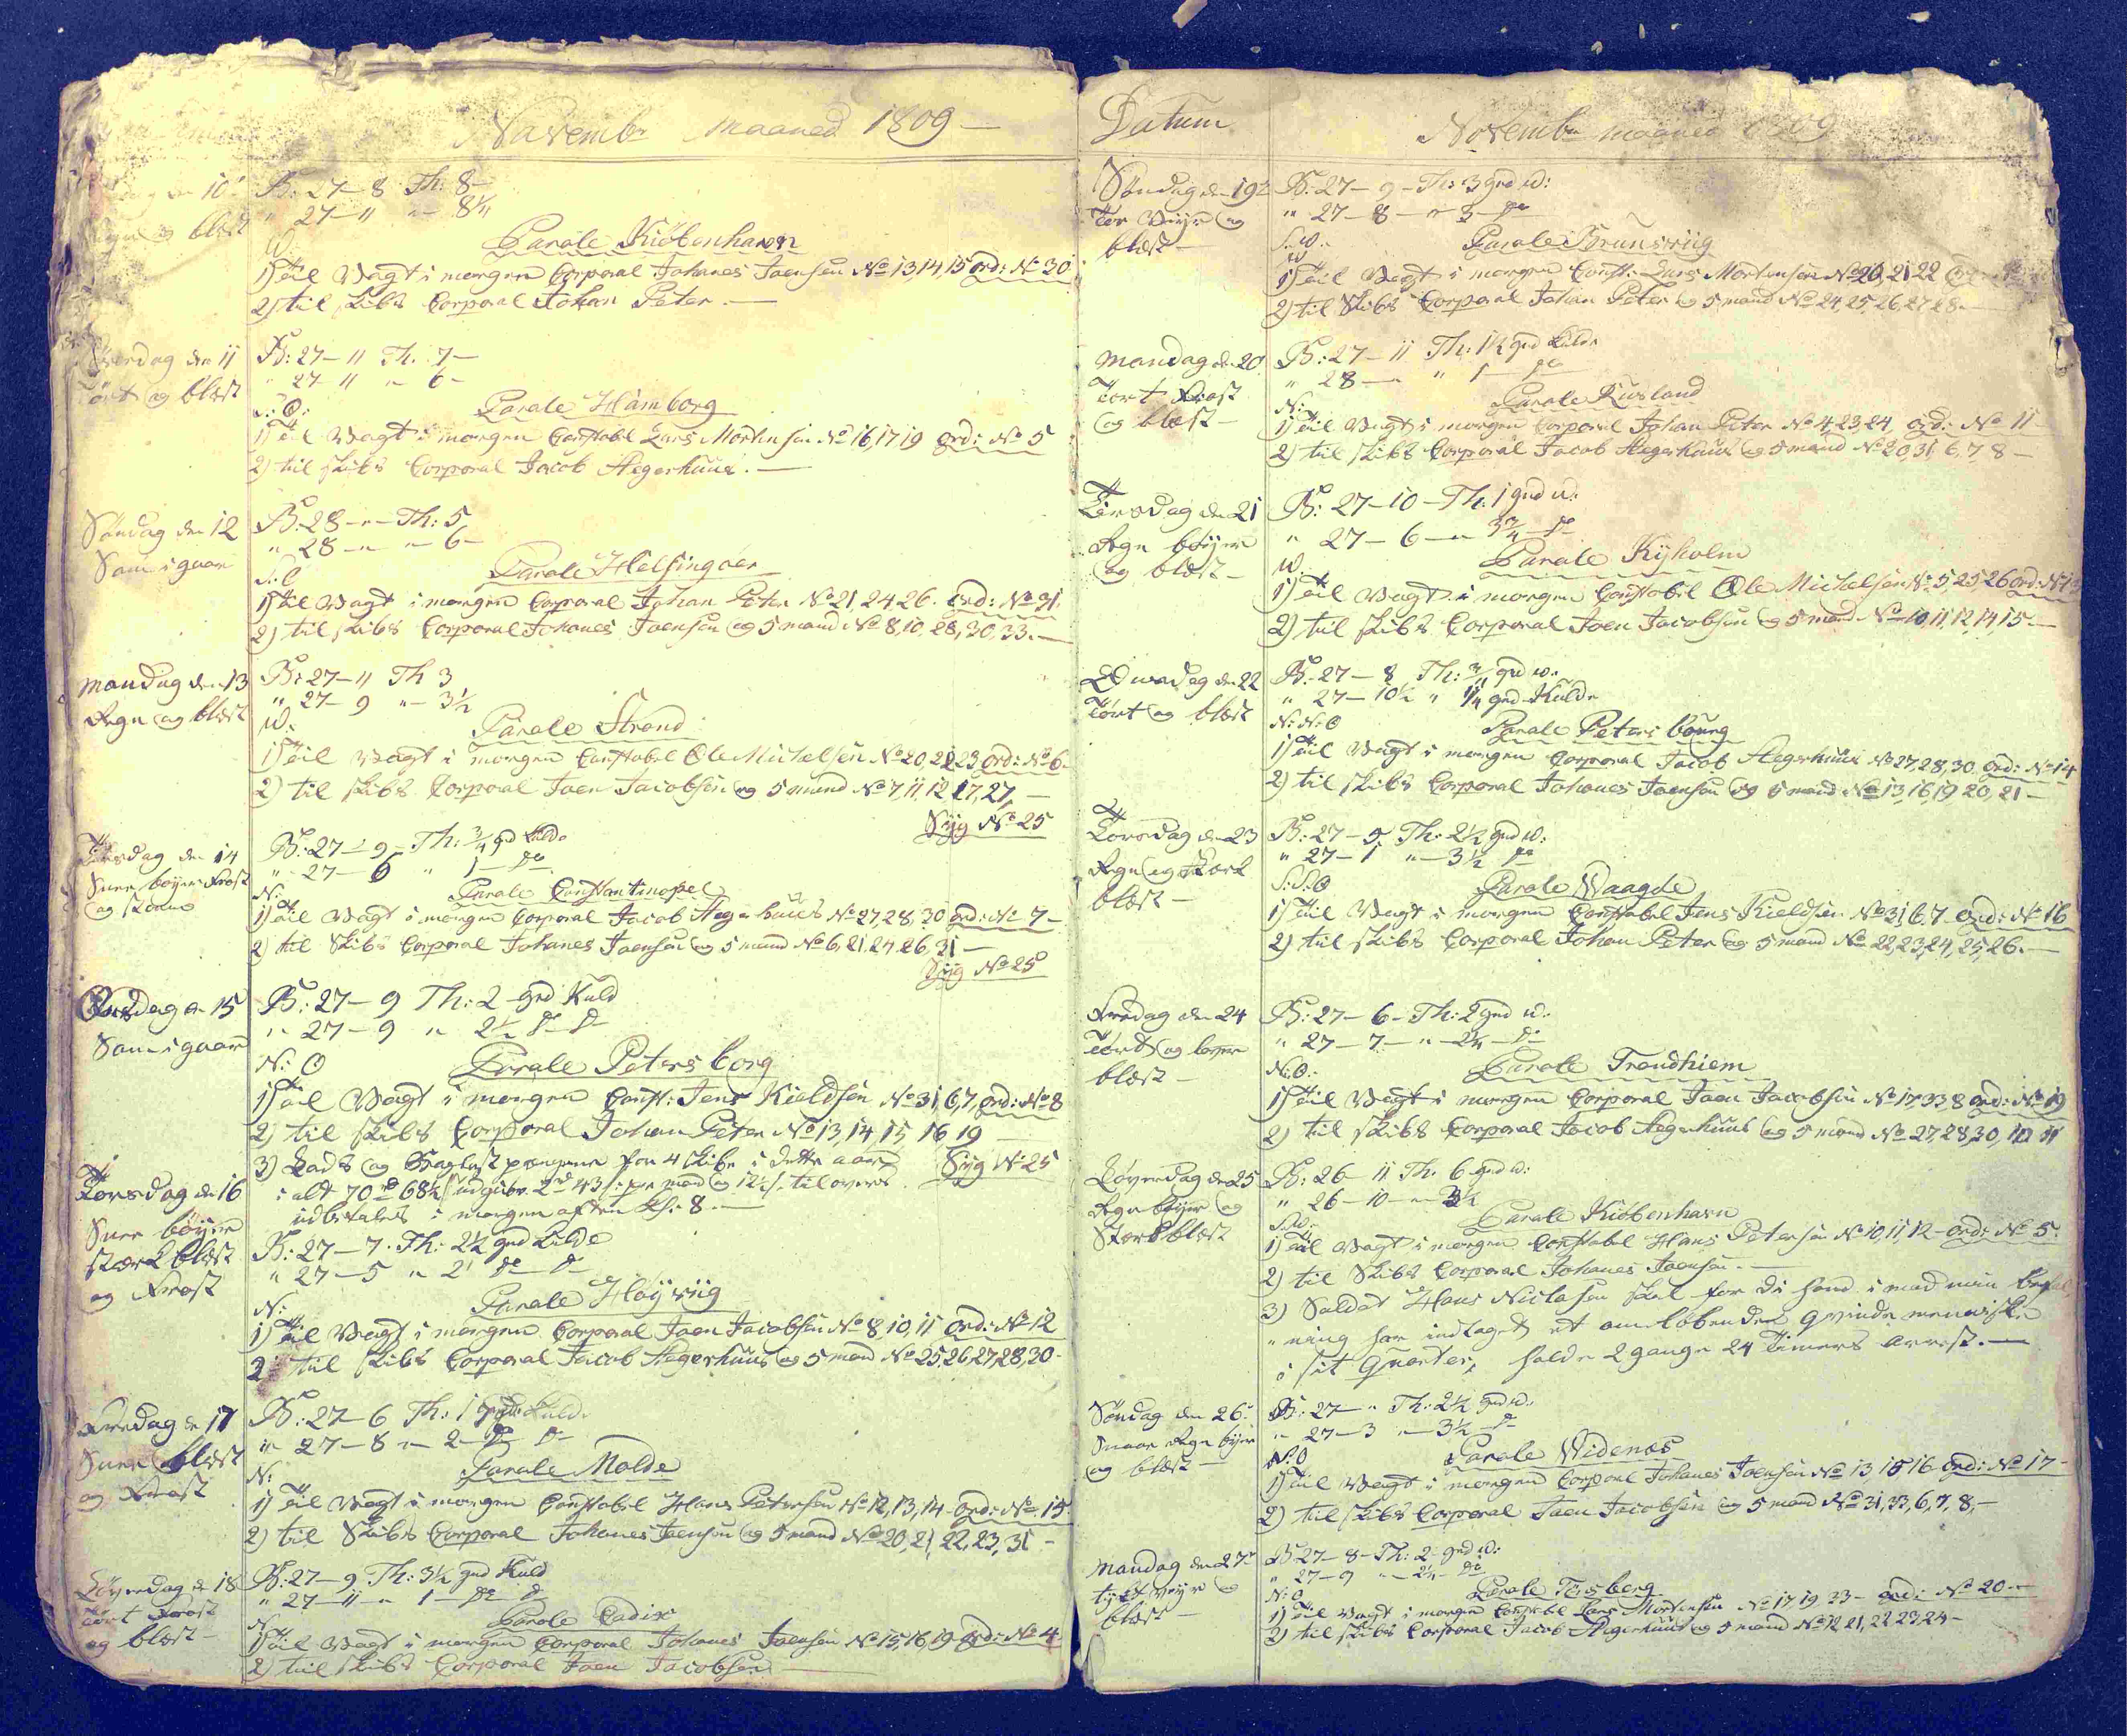 Novembr maaned 1809 —
10
B: 27 — 8 Th: 8 —
blæst
" 27 — 11 " — 8¼
W:
Parole Kiöbenhavn
1) Til Vagt i morgen Corporal Johanes Joensen No 13, 14 15 ord: No 30
2) til skibs Corporal Johan Peter. —
den 11
B: 27 — 11 Th: 7 —
Tört og blæst
" 27 11 " 6 —
Parole Hamborg
1) Til Vagt i morgen Constabel Lars Mortensen No 16, 17 19 ord: No 5
2) til skibs Corporal Jacob Aegerhuus. —
Söndag den 12
B: 28 — " — Th: 5
Som i gaar
" 28 — " " — 6 —
Parole Helsingöer
1) til Vagt i morgen Corporal Johan Peter No 21, 24 26. ord: No 31
2) til skibs Corporal Johanes Joensen og 5 mand No 8, 10, 28, 30, 33. —
Mandag den 13
B: 27 — 11 Th 3
Regn og blæst
" 27 — 9 " — 3½
W:
Parole Strand
1) Til Vagt i morgen Constabel Ole Michelsen No 20 22 23 ord: No 6
2) til skibs Corporal Joen Jacobsen og 5 mand No 7, 11, 12 17, 27, —
Syg No 25
Tirsdag den 14
B: 27 — 9 — Th: ¾ grd kuld
Snee böyer Frost
" — 27 — 6 " 1 — do
og storm
N:
Parole Constantinopel
1) Til Vagt i morgen Corporal Jacob Aegerhuus No 27, 28, 30 ord: No 7 —
2) til Skibs Corporal Johanes Joensen og 5 mand No 6, 21, 24 26, 31 —
Syg No 25
Onsdag den 15
B: 27 — 9 Th: 2 — grd Kuld
Som i gaar
" 27 — 9 " 2½ do do
N: O
Parole Petersborg
1) Til Vagt i morgen Const: Jens Kieldsen No 31 6, 7, ord: No 8
2) til skibs Corporal Johan Peter No 13, 14, 15 16 19
3) Lads og Baglast pængene for 4 skibe i dette aar
Syg No 25
i alt 70 rd 68¼ s udgiör 2 rd 43 s pr mand og 12½ s. tilovers
udbetales i morgen aften Kl: 8. —
Torsdag den 16
B: 27 — 7. Th: 2¼ grd kulde
Snee böyer
stærk blæst
" 27 — 5 " 2 do do
og Frost
N:
Parole Höyviig
1) Til Vagt i morgen Corporal Joen Jacobsen No 8, 10, 11 ord: No 12
2) til skibs Corporal Jacob Aegerhuus og 5 mand No 25 26, 27, 28, 30 —
Fredag den 17
B: 27 — 6 Th: 1 grd kuld
Snee blæst
" 27 — 8 " — 2 — do do
og Frost
N:
Parole Molde
1) Til Vagt i morgen Constabel Hans Petersen No 12, 13, 14 — ord: No 15
2) til Skibs Corporal Johanes Joensen og 5 mand No 20, 21, 22, 23, 31 —
Löverdag den 18
B: 27 — 9 Th: 3½ grd Kuld
Tört Frost
" 27 — 11 — " 1 — do do
og blæst —
N:
Parole Cadix
1) Til Vagt i morgen Corporal Johanes Joensen No 15 16 19 ord: No 4
2) til skibs Corporal Joen Jacobsen —
Datum
Novembr maaned 1809
Söndag den 19
B: 27 — 9 — Th: 3 grd w:
Tor Veyr og
" 27 — 8 — " 3 — do
blæst —
S: W:
Parole Brunsviig
1) Til Vagt i morgen Const: Lars Mortensen No 20, 21 22
2) til Skibs Corporal Johan Peter og 5 mand No 24, 25, 26, 27, 28. —
Mandag den 20
B: 27 — 11 Th: 1½ grd kulde
Tort Frost
" 28 — " " 1 — do
og blæst —
N:
Parole Rusland
1) Til Vagt i morgen Corporal Johan Peter No 4, 23, 24, ord: No 11
2) til skibs Corporal Jacob Aegerhuus og 5 mand No 20, 31, 6, 7, 8 —
Tirsdag den 21
B: 27 — 10 — Th: 1 grd w:
Regn böyer
" 27 — 6 — " 3¾ — do
og blæst —
W.
Parole Kyholm
1) Til Vagt i morgen Constabel Ole Michelsen No 5, 25, 26 ord: No
2) til skibs Corporal Joen Jacobsen og 5 mand No 10, 11, 12, 14, 15 —
Onsdag den 22
B: 27 — 8, Th: ¾ grd w:
Tört og blæst
" 27 — 10½ " ¼ grd Kulde
N: N: O
Parole Petersbourg
1) Til Vagt i morgen Corporal Jacob Aegerhuus No 27, 28, 30 ord: No 14
2) til skibs Corporal Johanes Joensen og 5 mand No 13, 16, 19 20, 21 —
Torsdag den 23
B: 27 — 5 Th: 2½ grd w:
Regn og stærk
" 27 — 1 " — 3½ do
blæst —
S: S: O
Parole Waagde
1) Til Vagt i morgen Constabel Jens Kieldsen No 31, 6, 7 — ord: No 16
2) til skibs Corporal Johan Peter og 5 mand No 22, 23, 24, 25, 26. —
Fredag den 24
B: 27 — 6 — Th: 2 grd w:
Tört og
" 27 — 7 — " — 2¼ — do
blæst —
N: O:
Parole Trondhiem
1) Til Vagt i morgen Corporal Joen Jacobsen No 17, 33 8 ord: No 19
2) til skibs Corporal Jacob Aegerhuus og 5 mand No 27, 28, 30, 10 11
Löverdag den 25
B: 26 — 11 Th: 6 grd w:
Regn böyer og
" 26 — 10 — " — 3½
Stærk blæst
S. W.
Parole Kiöbenhavn
1) Til Vagt i morgen Constabel Hans Petersen No 10, 11, 12 — ord: No 5.
2) til Skibs Corporal Johanes Joensen. —
3) Soldat Hans Niclasen skal for di hand imod min befal
" ning har indtaget et omlöbende qvinde menniske
i sit Qvarter, holde 2 gange 24 Timers arrest. —
Söndag den 26
B: 27 — " Th: 2½ grd w.
Regn böyer
" 27 — 3 " — 3½ — do
og blæst —
N: O
Parole Widenæs
1) Til Vagt i morgen Corporal Johanes Joensen No 13, 15 16 — ord: No 17 —
2) til skibs Corporal Joen Jacobsen og 5 mand No 31, 33, 6, 7, 8, —
Mandag den 27
B 27 — 8 — Th: 2 — grd w:
veyr og
" 27 — 9 " — 2¼ — do
blæst —
N: O
Parole Tönsberg
1) Til Vagt i morgen Constabel Lars Mortensen No 17 19 33 — ord: No 20 —
2) til skibs Corporal Jacob Aegerhuus og 5 mand No 12 21, 22 23, 24 —